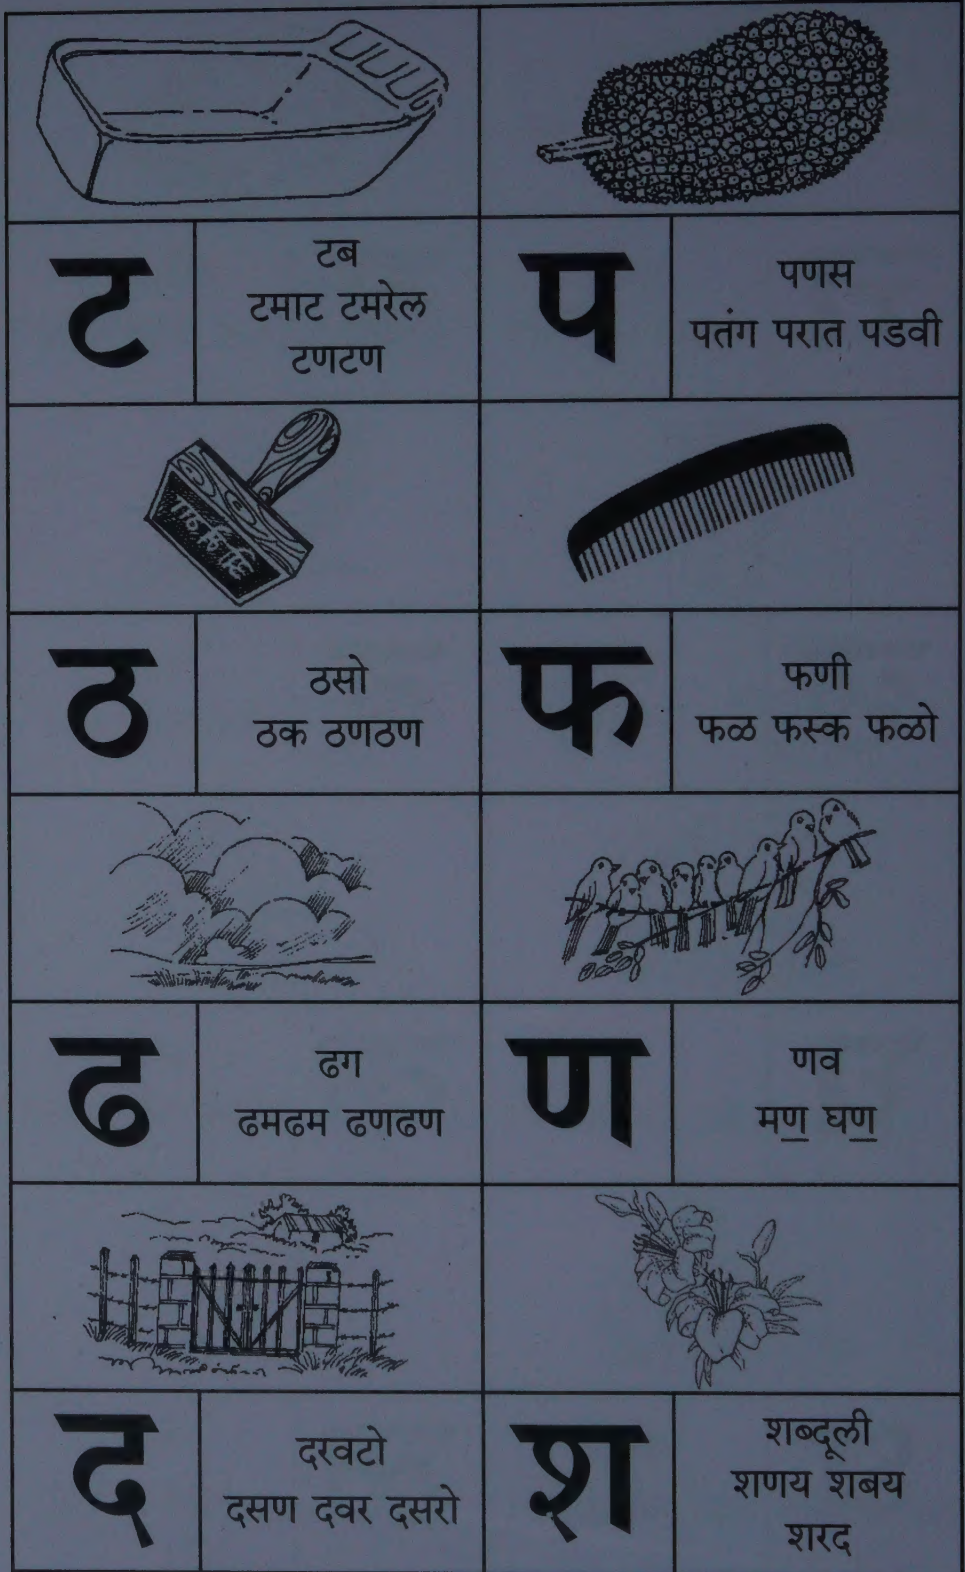 ट
टब
टमाट टमरेल
टणटण
प
पणस
पतंग परात पडवी
ठ
ठसो
ठक ठणठण
फ
फणी
फळ फस्क फळो
ढ
ढग
ढमढम ढणढण
ण
णव
मण घण
द
दरवटो
दसण दवर दसरो
श
शब्दूली
शणय शबय
शरद